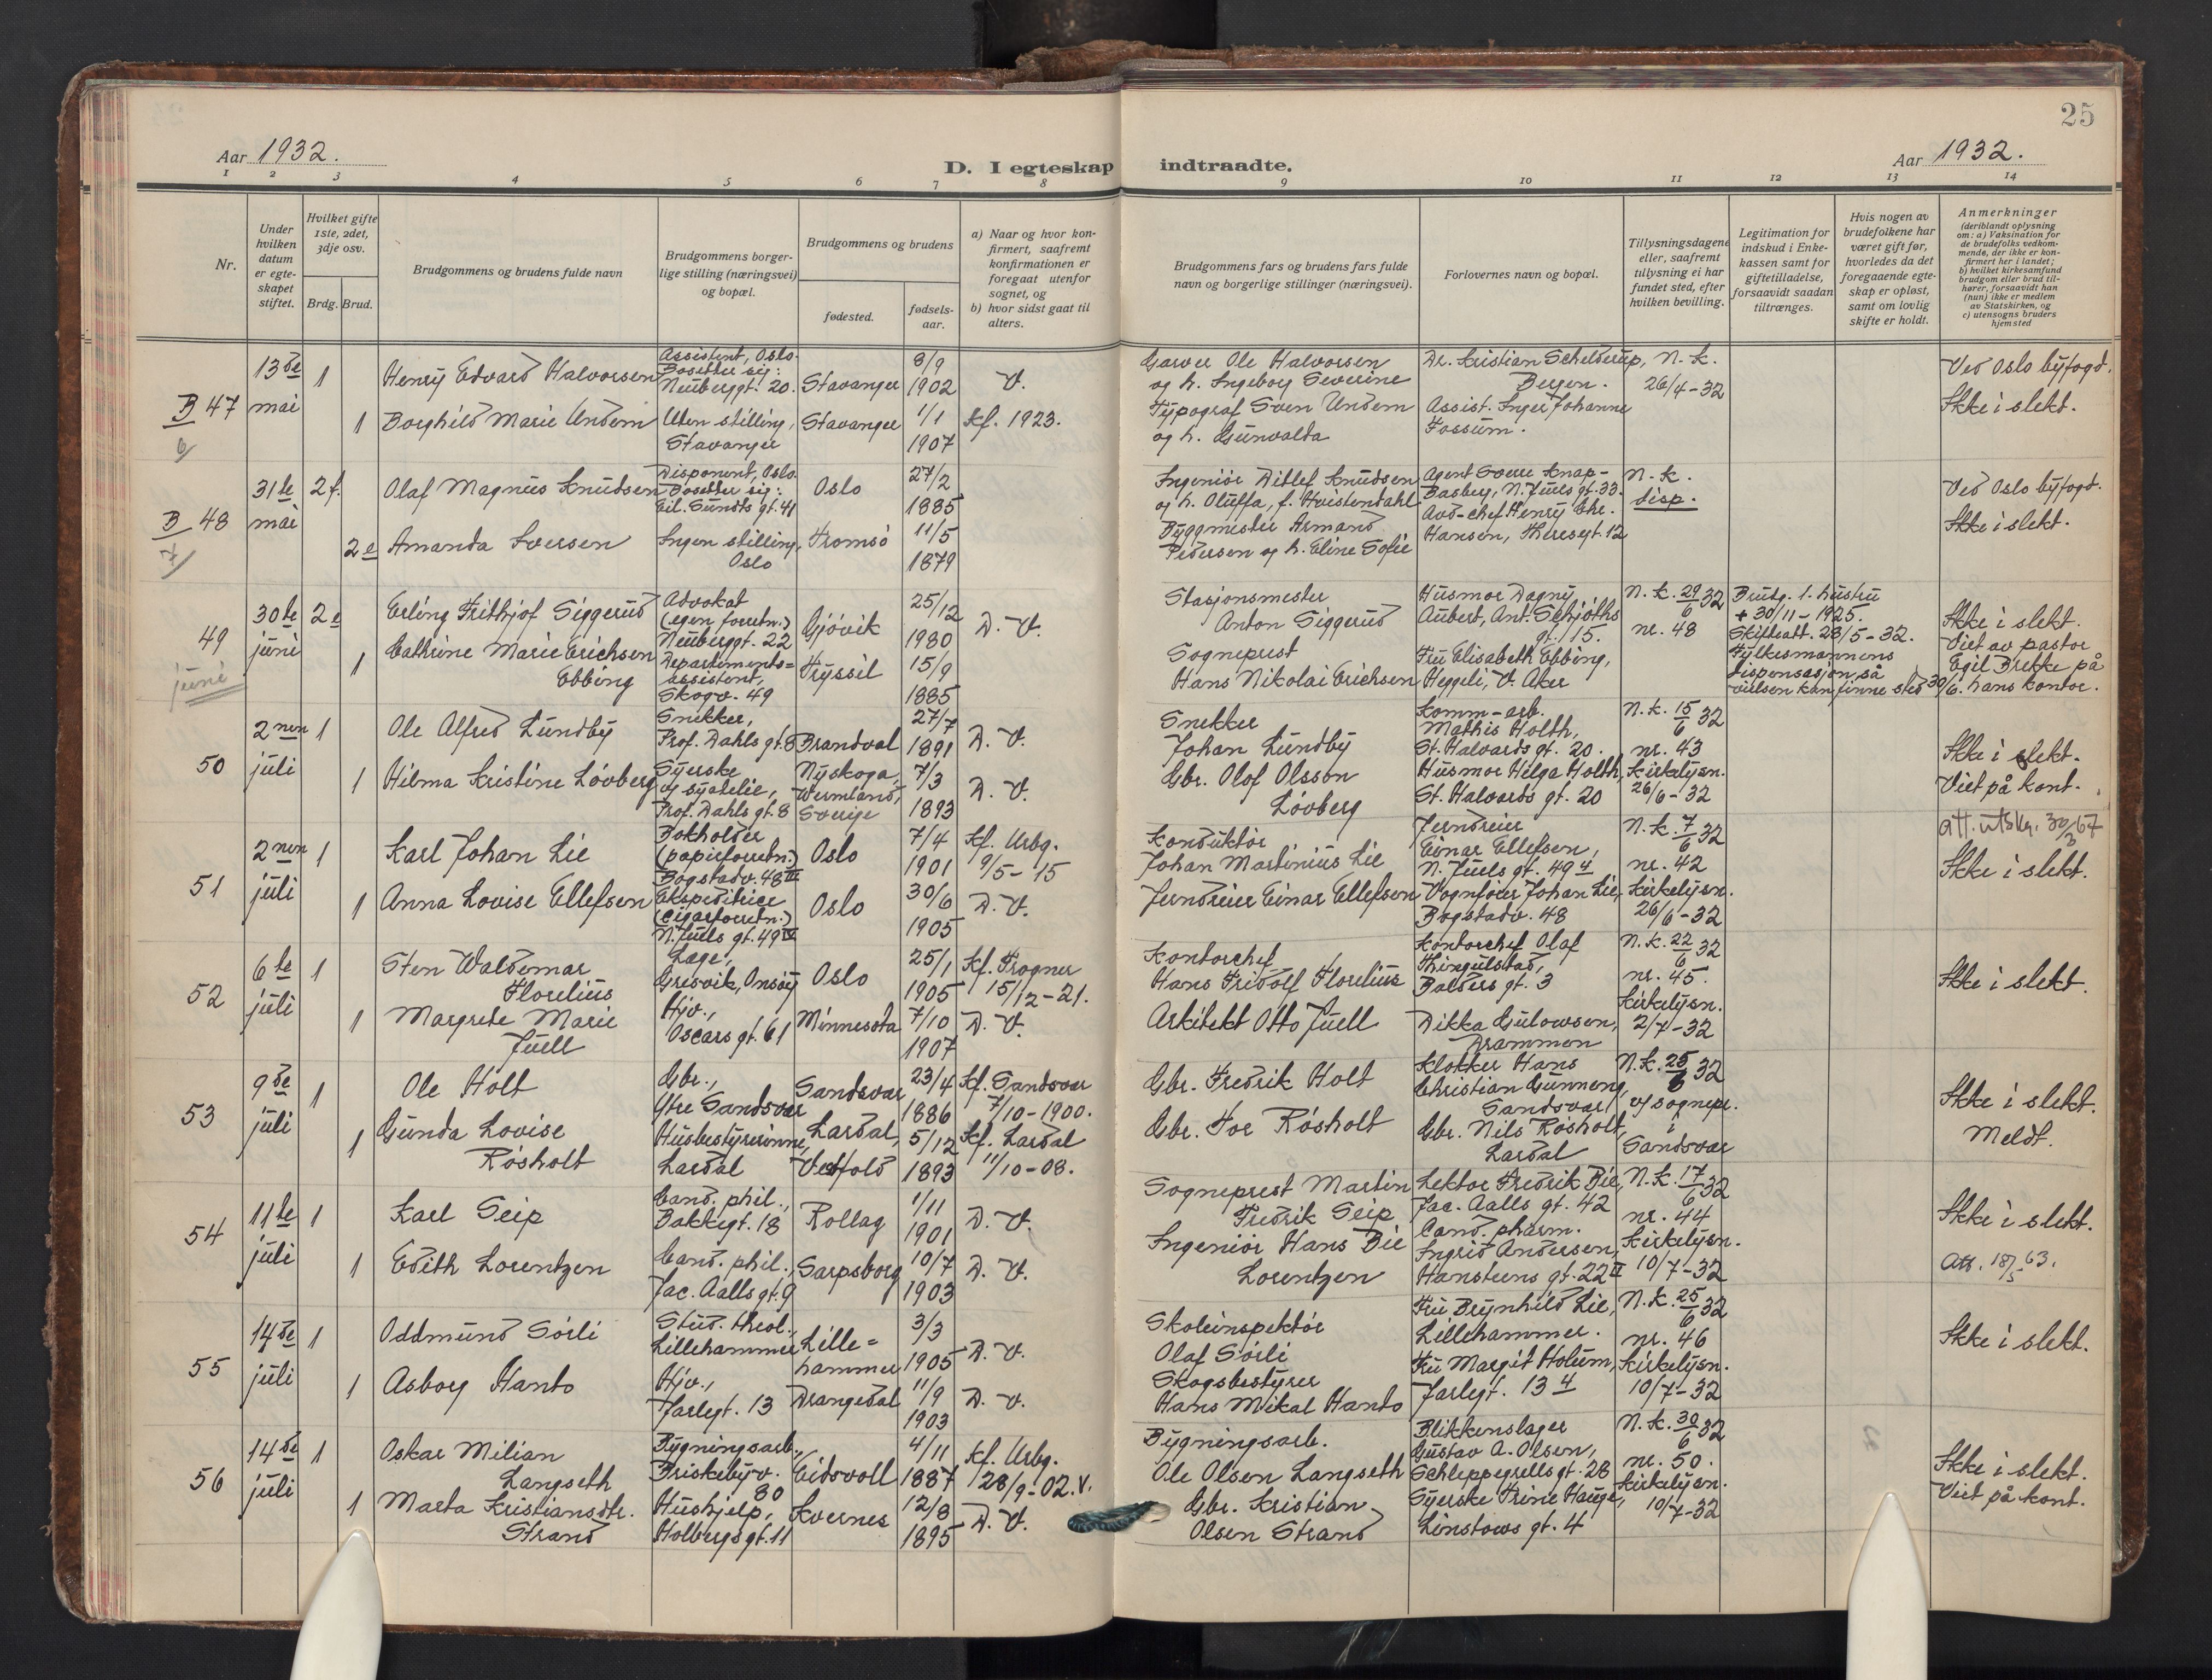 25
Aar 1932.
D. I egteskap indtraadte.
Aar 1932.
1 2 3 4 5 6 7 8 9 10 11 12 13 14
Nr.
Under hvilken datum er egteskapet stiftet.
Hvilket gifte 1ste, 2det, 3dje osv.
Brdg. Brud.
Brudgommens og brudens fulde navn
Brudgommens borgerlige stilling (næringsvei) og bopæl.
Brudgommens og brudens
fødested.
fødselsaar.
a) Naar og hvor konfirmert, saafremt konfirmationen er foregaat utenfor sognet, og
b) hvor sidst gaat til alters.
Brudgommens fars og brudens fars fulde navn og borgerlige stillinger (næringsvei).
Forlovernes navn og bopæl.
Tillysningsdagene eller, saafremt tillysning ei har fundet sted, efter hvilken bevilling.
Legitimation for indskud i Enkekassen samt for giftetilladelse, forsaavidt saadan tiltrænges.
Hvis nogen av brudefolkene har været gift før, hvorledes da det foregaaende egteskap er opløst, samt om lovlig skifte er holdt.
Anmerkninger
(deriblandt oplysning om: a) Vaksination for de brudefolks vedkommende, der ikke er konfirmert her i landet;
b) hvilket kirkesamfund brudgom eller brud tilhører, forsaavidt han (hun) ikke er medlem av Statskirken, og
c) utensogns bruders hjemsted
B 47
6/
13de mai
1
Henry Edvard Halvorsen
Assistent, Oslo.
Bosetter sig:
Neuberggt. 20.
Stavanger
8/9 1902
V.
Garver Ole Halvorsen
og h. Ingeborg Severine
Dr. Kristian Schelderup,
Bergen.
N. k.
26/4-32
Ved Oslo byfogd.
Ikke i slekt.
1
Borghild Marie Undem
Uten stilling,
Stavanger
Stavanger
1/1 1907
Kf. 1923.
Typograf Sven Undem
og h. Gunvalda
Assist. Inger Johanne
Fossum.
B 48
7/
31te mai
2 f.
Olaf Magnus Knudsen
Disponent, Oslo.
Bosetter sig:
Eil. Sundts gt. 41
Oslo
27/2 1885
Ingeniør Ditlef Knudsen
og h. Oluffa, f. Hvistendahl
Agent Sverre Knap-
Basberg, N. Juels gt. 33.
N. k.
disp.
Ved Oslo byfogd.
Ikke i slekt.
2 e
Amanda Iversen
Ingen stilling,
Oslo
Tromsö
11/5 1879
Byggmester Armand
Pedersen og h. Eline Sofie
Avd-chef Henry Chr.
Hansen, Theresegt. 12
49
juni
30te juni
2 e
Erling Frithjof Siggerud
Advokat
(egen forretn.)
Neuberggt. 22
Gjövik
25/12 1980
D. V.
Stasjonsmester
Anton Siggerud
Husmor Dagny
Aubert, Ant. Schjøths
gt. 15.
N. k. 29/6 32
nr. 48
Brudg. 1. hustru
+ 30/11-1925.
Skifteatt. 28/5-32.
Fylkesmannens
dispensasjon så
vielsen kan finne sted 30/6.
Ikke i slekt.
Viet av pastor
Egil Brekke på
hans kontor.
1
Cathrine Marie Erichsen
Ebbing
Departements=
assistent,
Skogv. 49
Trysil
15/9 1885
Sogneprest
Hans Nikolai Erichsen
Fru Elisabeth Ebbing,
Heggeli, V. Aker
50
2nen juli
1
Ole Alfred Lundby
Snekker,
Prof. Dahls gt. 8
Brandval
27/7 1891
D. V.
Snekker
Johan Lundby
Komm-arb.
Mathis Holth,
St. Halvards gt. 20.
N. k. 15/6 32
nr. 43
Kirkelysn.
26/6-32
Ikke i slekt.
Viet på kont.
1
Hilma Kristine Lövberg
Syerske
v/ syatelie,
Prof. Dahls gt. 8
Nyskoga,
Wermland,
Sverige
7/3 1893
D. V.
Gbr. Olof Olsson
Lövberg
Husmor Helga Holth,
St. Halvards gt. 20
51
2nen juli
1
Karl Johan Lie
Bokholder
(papirforretn.)
Bogstadv. 48 III
Oslo
7/4 1901
Kf. Urbg.
9/5-15
Konduktør
Johan Martinius Lie
Jerndreier
Einar Ellefsen,
N. Juels gt. 49 4
N. k. 7/6 32
nr. 42
Kirkelysn.
26/6-32
att. utskr. 30/3 67
Ikke i slekt.
1
Anna Lovise Ellefsen
Ekspeditrice
(cigarforretn.)
N. Juels gt. 49 IV
Oslo
30/6 1905
D. V.
Jerndreier Einar Ellefsen
Vognfører Johan Lie,
Bogstadv. 48
52
6te juli
1
Sten Waldemar
Florelius
Læge,
Gresvik, Onsöy
Oslo
25/1 1905
Kf. Frogner
15/12-21.
Kontorchef
Hans Fridolf Florelius
Kontorchef Olaf
Thingulstad,
Balders gt. 3
N. k. 22/6 32
nr. 45.
Kirkelysn.
2/7-32
Ikke i slekt.
1
Margrete Marie
Juell
Hjv.,
Oscars gt. 61
Minnesota
7/10 1907
D. V.
Arkitekt Otto Juell
Dikka Gulowsen,
Drammen
53
9de juli
1
Ole Holt
Gbr.,
Ytre Sandsvær
Sandsvær
23/4 1886
Kf. Sandsvær
7/10-1900.
Gbr. Fredrik Holt
Klokker Hans
Christian Gunneng,
Sandsvær
N. k. 25/6 32
v/ sognepr.
i
Sandsvær
Ikke i slekt.
Meldt.
1
Gunda Lovise
Røsholt
Husbestyrerinne,
Lardal
Lardal,
Vestfold
5/12 1893
Kf. Lardal
11/10-08.
Gbr. Tor Røsholt
Gbr. Nils Røsholt,
Lardal
54
11te juli
1
Karl Seip
Cand. phil.,
Bakkegt. 18
Rollag
1/11 1901
D. V.
Sogneprest Martin
Fredrik Seip
Lektor Fredrik Bie,
Jac. Aalls gt. 42
N. k. 17/6 32
nr. 44
Kirkelysn.
10/7-32
Ikke i slekt.
Att. 18/5 63.
1
Edith Lorentzen
Cand. phil.,
Jac. Aalls gt. 9
Sarpsborg
10/7 1903
D. V.
Ingeniör Hans Bie
Lorentzen
Cand. pharm.
Ingrid Andersen,
Hansteens gt. 22 II
55
14de juli
1
Oddmund Sörli
Stud. theol.,
Lillehammer
Lille=
hammer
3/3 1905
D. V.
Skoleinspektör
Olaf Sörli
Fru Brynhild Lie,
Lillehammer.
N. k. 25/6 32
nr. 46
Kirkelysn.
10/7-32
Ikke i slekt.
1
Asborg Hanto
Hjv.,
Jarlegt. 13
Drangedal
11/9 1903
D. V.
Skogsbestyrer
Hans Mikal Hanto
Fru Margit Holum,
Jarlegt. 13 4
56
14de juli
1
Oskar Milian
Langseth
Bygningsarb.,
Briskebyv.
80
Eidsvoll
4/11 1887
Kf. Urbg.
28/9-02. V.
Bygningsarb.
Ole Olsen Langseth
Blikkenslager
Gustav A. Olsen,
Schleppegrells gt. 28
N. k. 30/6 32
nr. 50.
Kirkelysn.
10/7-32
Ikke i slekt.
Viet på kont.
1
Marta Kristiansdtr.
Strand
Hushjelp,
Holbergs gt. 11
Kvernes
12/8 1895
D. V.
Gbr. Kristian
Olsen Strand
Syerske Trine Hauge,
Linstows gt. 4